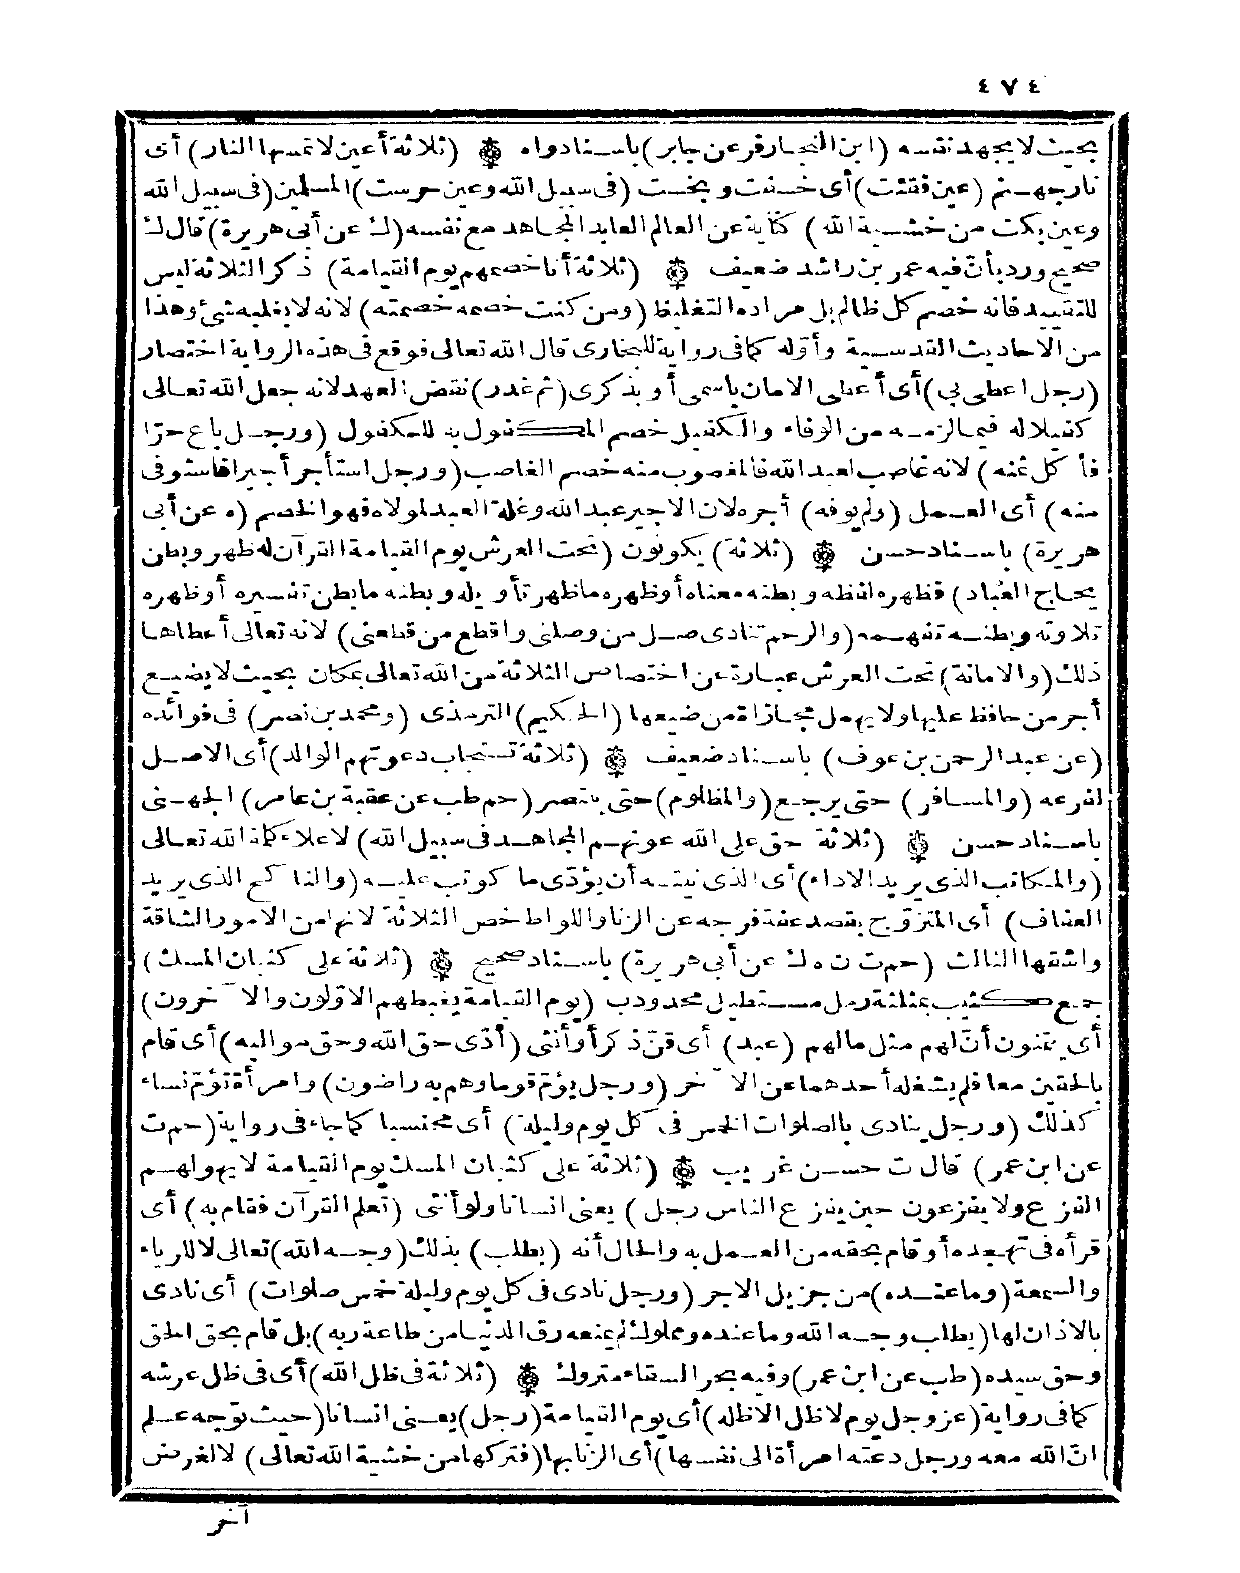 ٤٧٤
بحيث لا يجهد نفسه (ابن النجار فر عن جابر) باسناد واه ۞ (ثلاثة أعين لا تمسها النار) أى
نار جهنم (عين فقئت) أى خسفت وبخست (فى سبيل الله وعين حرست) المسلمين (فى سبيل الله
وعين بكت من خشية الله) كناية عن العالم العابد المجاهد مع نفسه (ك عن أبى هريرة) قال ك
صحيح ورد بأن فيه عمر بن راشد ضعيف ۞ (ثلاثة أنا خصمهم يوم القيامة) ذكر الثلاثة ليس
للتقييد فانه خصم كل ظالم بل مراده التغليظ (ومن كنت خصمه خصمته) لانه لا يغلبه شئ وهذا
من الاحاديث القدسية وأوّله كما فى رواية للبخارى قال الله تعالى فوقع فى هذه الرواية اختصار
(رجل اعطى بى) أى أعطى الامان باسمى أو بذكرى (ثم غدر) نقض العهد لانه جعل الله تعالى
كفيلا له فيما لزمه من الوفاء والكفيل خصم المكفول به للمكفول (ورجل باع حرّا
فأكل ثمنه) لانه غاصب لعبد الله فالمغصوب منه خصم الغاصب (ورجل استأجر أجيرا فاستوفى
منه) أى العمل (ولم يوفه) أجره لان الاجير عبد الله وغلة العبد لمولاه فهو الخصم (ه عن أبى
هريرة) باسناد حسن ۞ (ثلاثة) يكونون (تحت العرش يوم القيامة القرآن له ظهر وبطن
يحاج العباد) فظهره لفظه وبطنه معناه أو ظهره ما ظهر تأويله وبطنه ما بطن تفسيره أو ظهره
تلاوته وبطنه تفهمه (والرحم تنادى صل من وصلنى واقطع من قطعنى) لانه تعالى أعطاها
ذلك (والامانة) تحت العرش عبارة عن اختصاص الثلاثة من الله تعالى بمكان بحيث لا يضيع
أجر من حافظ عليها ولا يهمل مجازاة من ضيعها (الحكيم) الترمذى (ومحمد بن نصر) فى فوائده
(عن عبد الرحمن بن عوف) باسناد ضعيف ۞ (ثلاثة تستجاب دعوتهم الوالد) أى الاصل
لفرعه (والمسافر) حتى يرجع (والمظلوم) حتى ينتصر (حم طب عن عقبة بن عامر) الجهنى
باسناد حسن ۞ (ثلاثة حق على الله عونهم المجاهد فى سبيل الله) لاعلاء كلمة الله تعالى
(والمكاتب الذى يريد الاداء) أى الذى نيته أن يؤدّى ما كوتب عليه (والناكح الذى يريد
العفاف) أى المتزوّج بقصد عفة فرجه عن الزنا واللواط خص الثلاثة لانها من الامور الشاقة
واشقها الثالث (حم ت ن ه ك عن أبى هريرة) باسناد صحيح ۞ (ثلاثة على كثبان المسك)
جمع كثيب بمثلثة رمل مستطيل محدودب (يوم القيامة يغبطهم الاوّلون والآخرون)
أى يتمنون أن لهم مثل مالهم (عبد) أى قنّ ذكر أو أنثى (أدّى حق الله وحق مواليه) أى قام
بالحقين معا فلم يشغله أحدهما عن الآخر (ورجل يؤمّ قوما وهم به راضون) وامرأة تؤمّ نساء
كذلك (ورجل ينادى بالصلوات الخمس فى كل يوم وليلة) أى محتسبا كما جاء فى رواية (حم ت
عن ابن عمر) قال ت حسن غريب ۞ (ثلاثة على كثبان المسك يوم القيامة لا يهولهم
الفزع ولا يفزعون حين يفزع الناس رجل) يعنى انسانا ولو أنثى (تعلم القرآن فقام به) أى
قرأه فى تهجده أو قام بحقه من العمل به والحال أنه (يطلب) بذلك (وجه الله) تعالى لا للرياء
والسمعة (وما عنده) من جزيل الاجر (ورجل نادى فى كل يوم وليلة خمس صلوات) أى نادى
بالاذان لها (يطلب وجه الله وما عنده ومملوك لم يمنعه رق الدنيا من طاعة ربه) بل قام بحق الحق
وحق سيده (طب عن ابن عمر) وفيه بحر السقاء متروك ۞ (ثلاثة فى ظل الله) أى فى ظل عرشه
كما فى رواية (عز وجل يوم لا ظل الا ظله) أى يوم القيامة (رجل) يعنى انسانا (حيث توجه علم
انّ الله معه ورجل دعته امرأة الى نفسها) أى الزنا بها (فتركها من خشية الله تعالى) لا لغرض
آخر